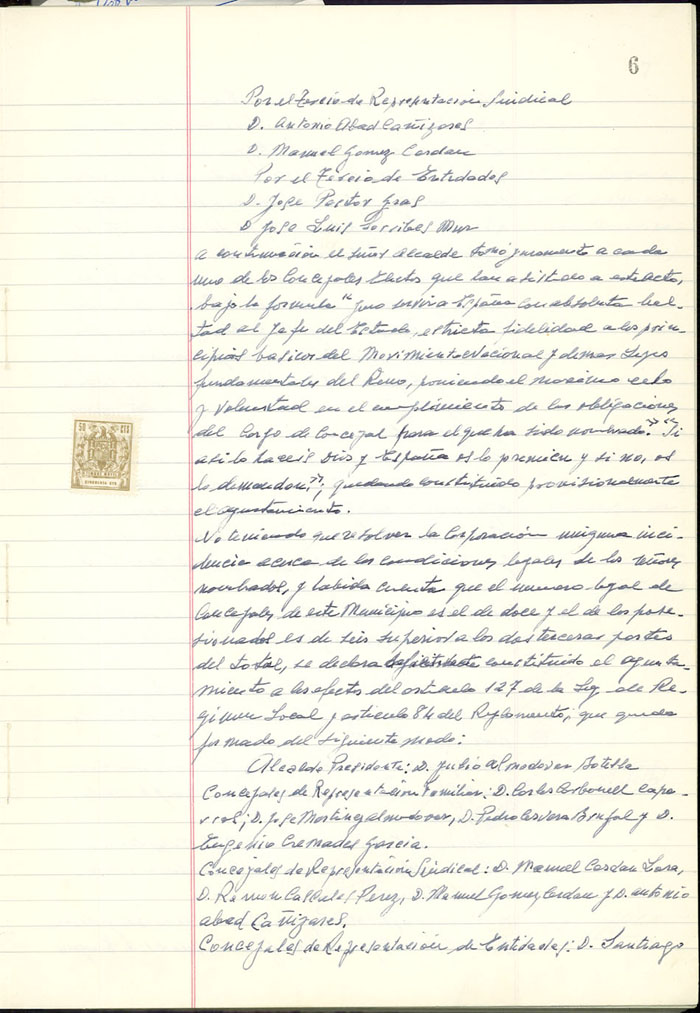 6
Por el Tercio de Representacion Sindical
D. Antonio Abad Cañizares
D. Manuel Gomez Cerdan
Por el Tercio de Entidades
D. Jose Pastor Gras
D Jose Luis Mur
A continuación el señor Alcalde tomó juramento a cada
uno de los Concejales electos que han asistido a este acto,
bajo la formula "Juro servir a España con absoluta leal-
tad al Jefe del Estado, estricta fidelidad a los prin-
cipios basicos del Movimiento Nacional y demas Leyes
fundamentales del Reino, poniendo el maximo celo
y voluntad en el cumplimiento de las obligaciones
del Cargo de Concejal para el que ha sido nombrado". "Si
asi lo haceis Dios y España os lo premien y si no, os
lo demanden", quedando constituido provisionalmente
el ayuntamiento.
No teniendo que resolver la Corporación ninguna inci-
dencia acerca de las condiciones legales de los señores
nombrados, y habida cuenta que el numero legal de
Concejales de este Municipio es el de doce y el de los pose-
sionados es de superior a las dos terceras partes
del total, se declara constituido el ayunta-
miento a los efectos del articulo 127 de la Ley de Re-
gimen Local y articulo 84 del Reglamento, que queda
formado del siguiente modo:
Alcalde Presidente: D. Julio Almodovar Botella
Concejales de Representacion Familiar: D. Carlos Carbonell Capa-
rros; D. Jose Martinez Almodovar, D. Pedro y D.
Eugenio Cremades Garcia.
Concejales de Representación Sindical: D. Manuel Cerdan Lara,
D. Ramon Perez, D. Manuel Gomez Cerdan y D. Antonio
Abad Cañizares.
Concejales de Representación de Entidades: D. Santiago
50 CTS